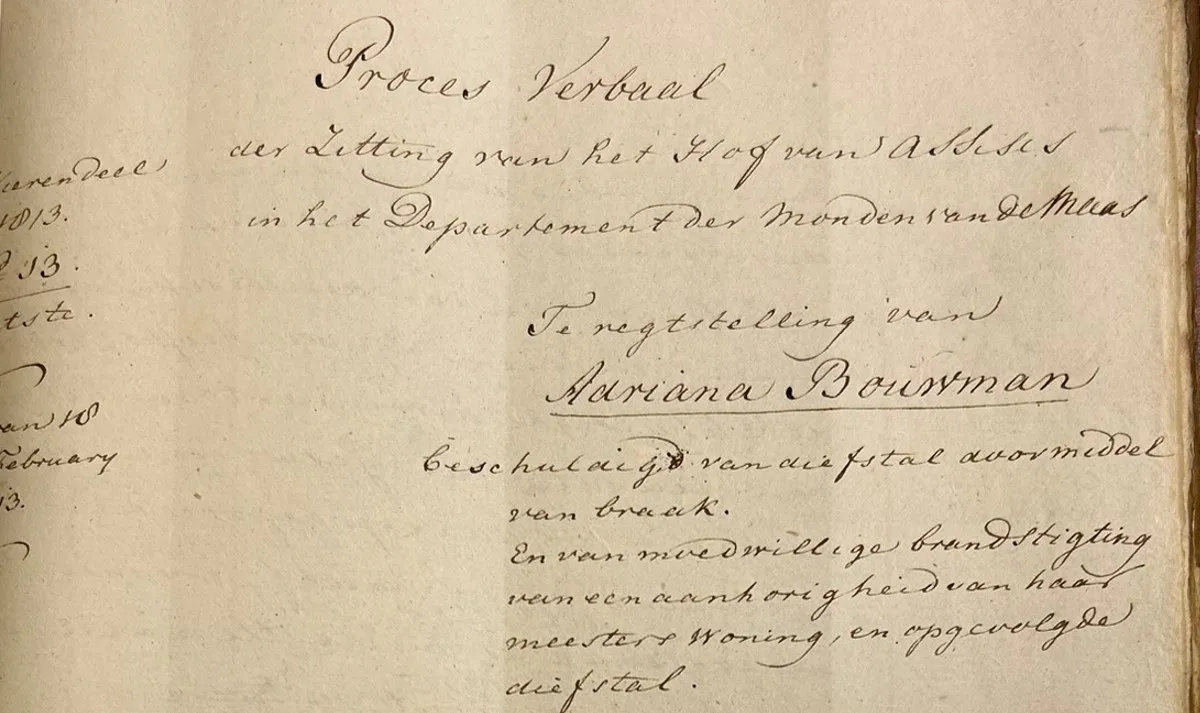 Proces Verbaal
der Zitting van het Hof van Assises
in het Departement der Monden van de Maas
Te regtstelling van
Adriana Bouwman
beschuldigd van diefstal door middel
van braak.
En van moedwillige brandstigting
van een aanhorigheid van haar
meesters Woning, en opgevolgde
diefstal.
ierendeel
1813.
13.
tste.
an 18
February
13.